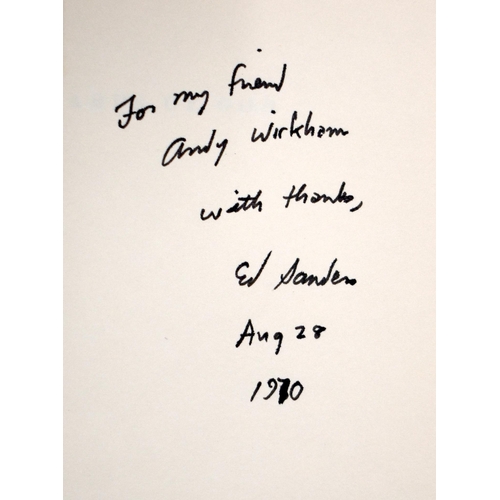 For my friend
Andy Wickham
with thanks,
Ed Sanders
Aug 28
1970